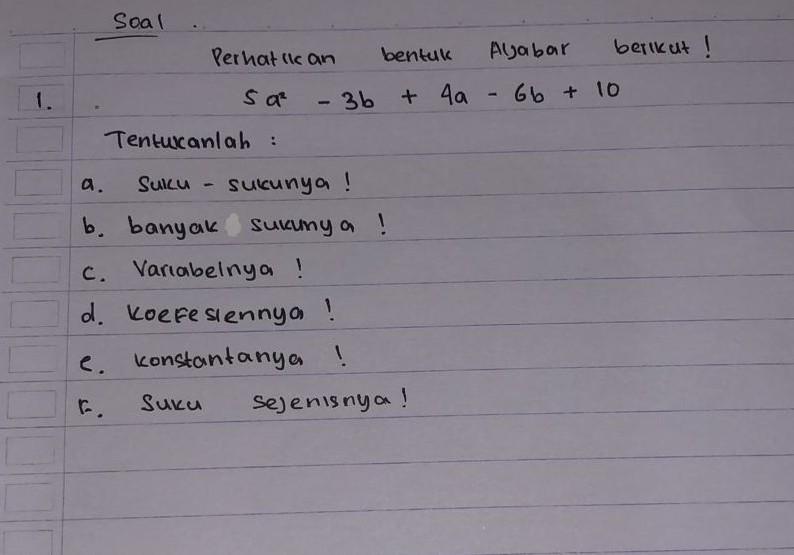 Soal .
Perhatikan bentuk Aljabar berikut !
1. 5a² - 3b + 4a - 6b + 10
Tentukanlah :
a. Suku - sukunya !
b. banyak sukunya !
c. Variabelnya !
d. Koefesiennya !
e. konstantanya !
F. Suku sejenisnya !